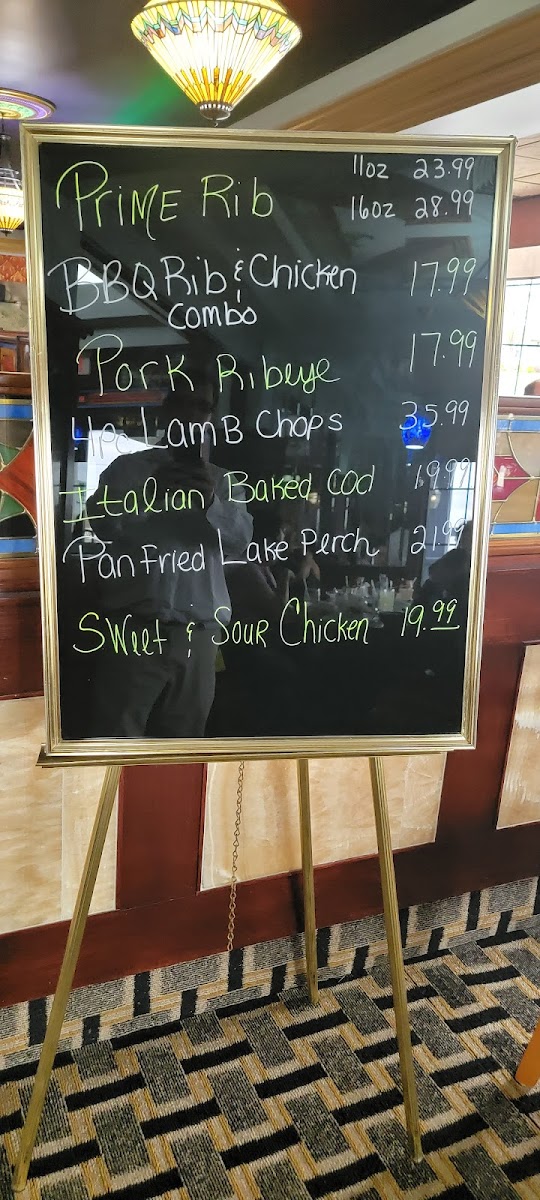 Prime Rib 11oz 23.99
16oz 28.99
BBQ Rib & Chicken 17.99
Combo
Pork Ribeye 17.99
4pc Lamb Chops 35.99
Italian Baked Cod 19.99
Pan Fried Lake Perch 21.99
Sweet & Sour Chicken 19.99